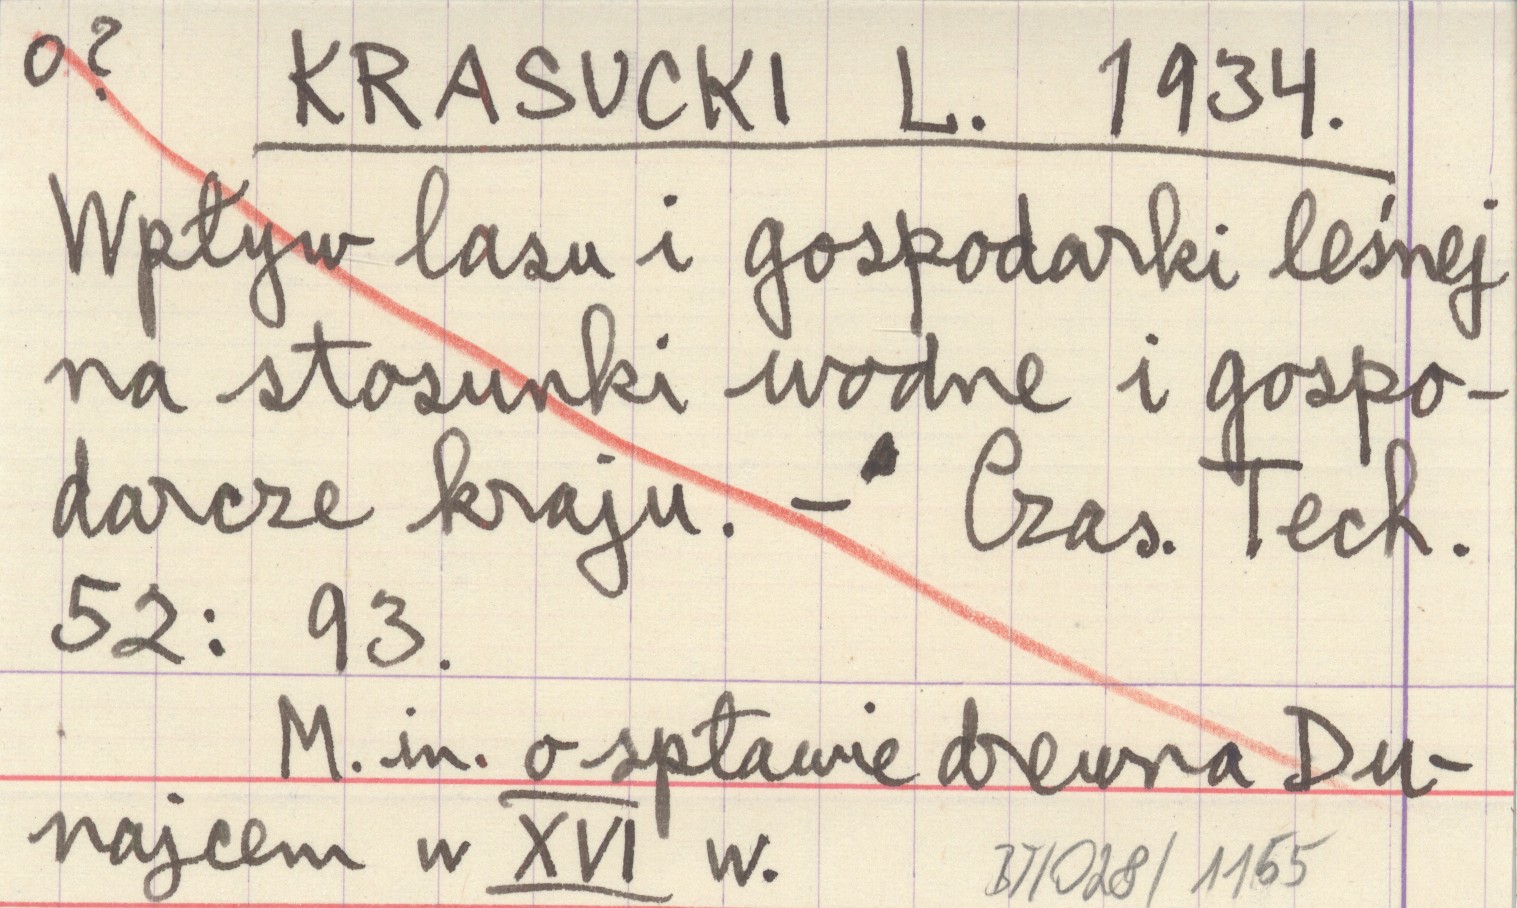 o?
KRASUCKI L. 1934.
Wpływ lasu i gospodarki leśnej
na stosunki wodne i gospo-
darcze kraju. - Czas. Tech.
52: 93.
M. in. o spławie drewna Du-
najcem w XVI w.
BT/028/1155